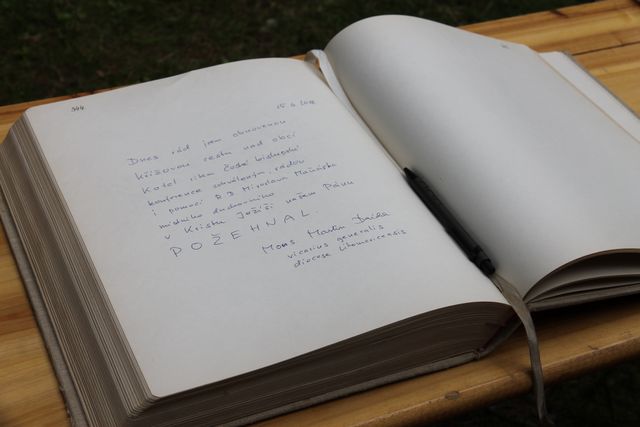 344
Dnes rád jsem obnovenou
křížovou cestu nad obcí
Kotel všem České biskupské
konference schváleným, rádou
i pomocí P. B. Miroslava Maťátka
místního duchovního
v Kristu Ježíši našem Pánu
POŽEHNAL.
Mons Martin Davídek
vicarius generalis
diocese litomericensis